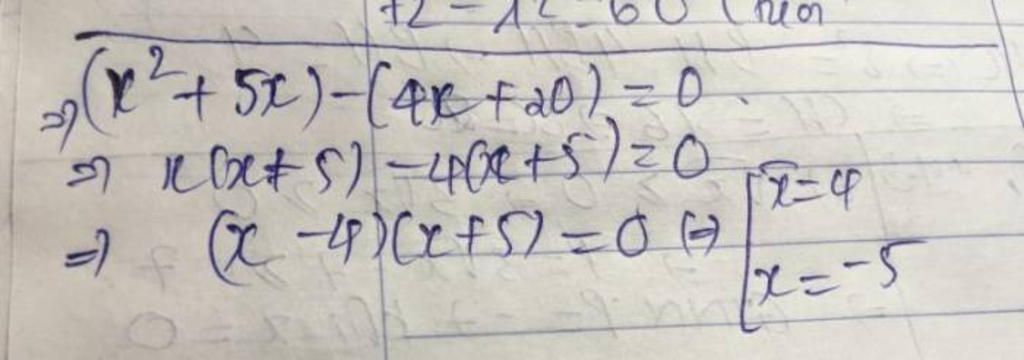 72 - 12 = 60 (
⇒ (x² + 5x) - (4x + 20) = 0.
⇒ x(x + 5) - 4(x + 5) = 0
⇒ (x - 4)(x + 5) = 0 ⇔ [ x = 4
x = -5